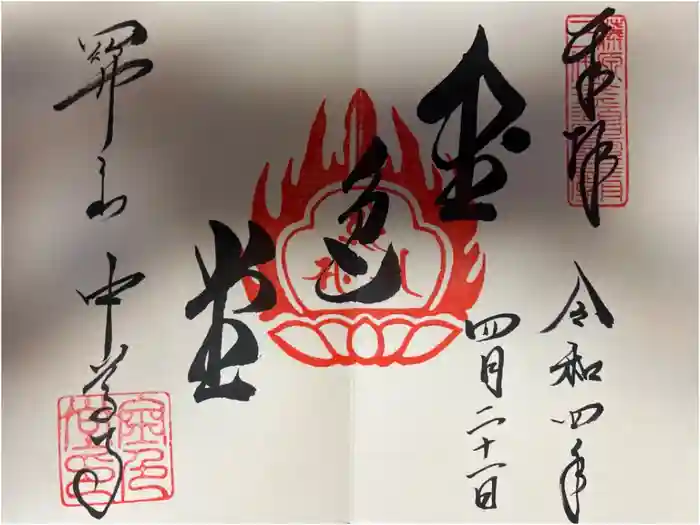 奉拝
令和四年
四月二十一日
金色堂
関山 中尊寺
金色堂印